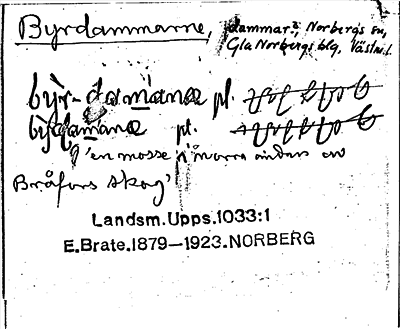 Byrdammarne, dammar?, Norbergs sn,
Gla Norbergs blg, Västml.
by̆r-damana pl.
by̆rdamana pl.
'en mosse i norra ändan av
Bråfors skog'
Landsm.Upps.1033:1
E.Brate.1879–1923.NORBERG